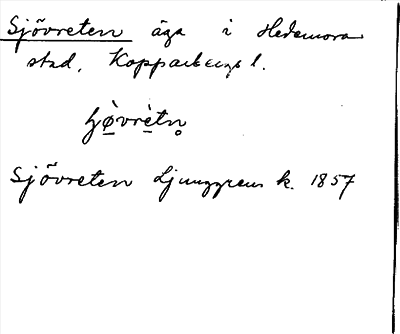 Sjövreten äga i Hedemora
stad, Kopparbergs l.
Sjövreten Ljunggrens k. 1857